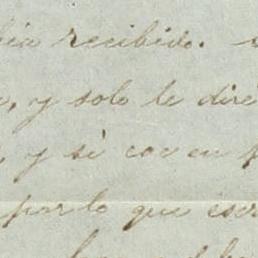 bia recibido.
, y solo le diré
, y si coo en
por lo que escr